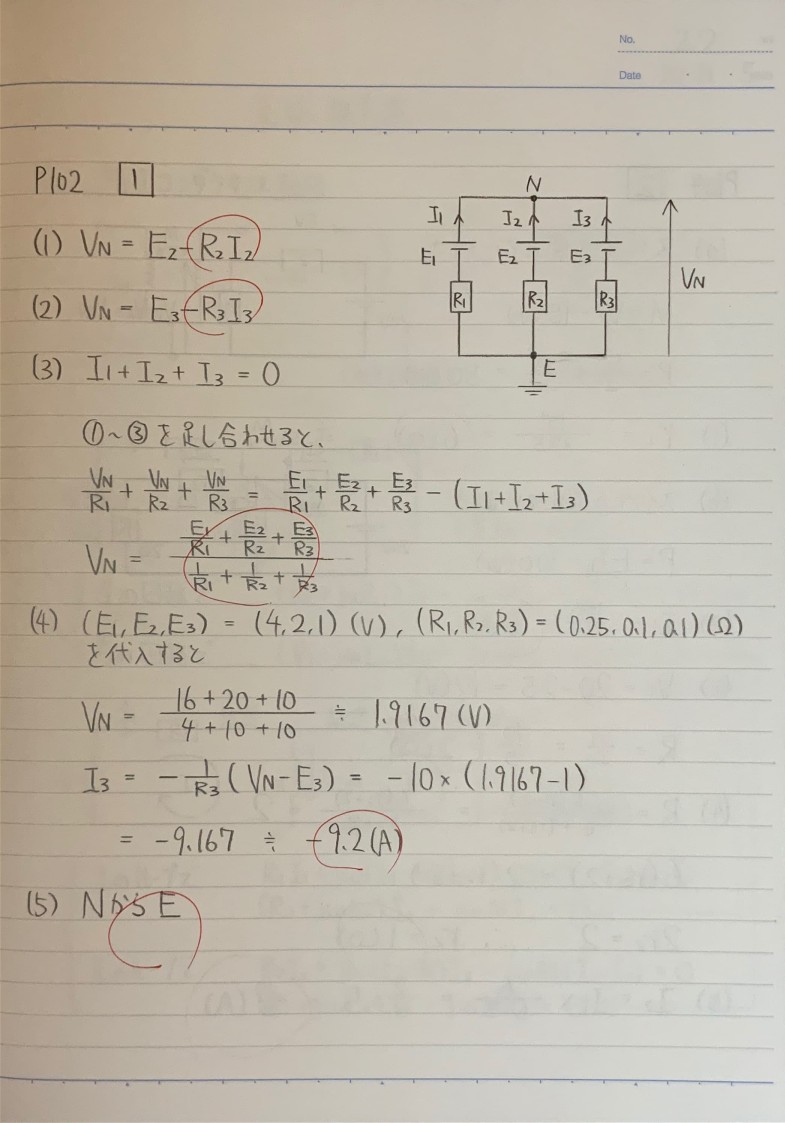 No.
Date
P102 1
(1) VN = E2 - R2I2
(2) VN = E3 - R3I3
(3) I1 + I2 + I3 = 0
N
I1 I2 I3
E1 E2 E3
R1 R2 R3
VN
E
①~③を足し合わせると、
VN/R1 + VN/R2 + VN/R3 = E1/R1 + E2/R2 + E3/R3 - (I1+I2+I3)
VN = (E1/R1 + E2/R2 + E3/R3)/(1/R1 + 1/R2 + 1/R3)
(4) (E1,E2,E3) = (4,2,1) (V), (R1,R2,R3) = (0.25,0.1,0.1)(Ω)
を代入すると
VN = (16+20+10)/(4+10+10) ≒ 1.9167(V)
I3 = -1/R3 (VN-E3) = -10×(1.9167-1)
= -9.167 ≒ -9.2(A)
(5) NからE